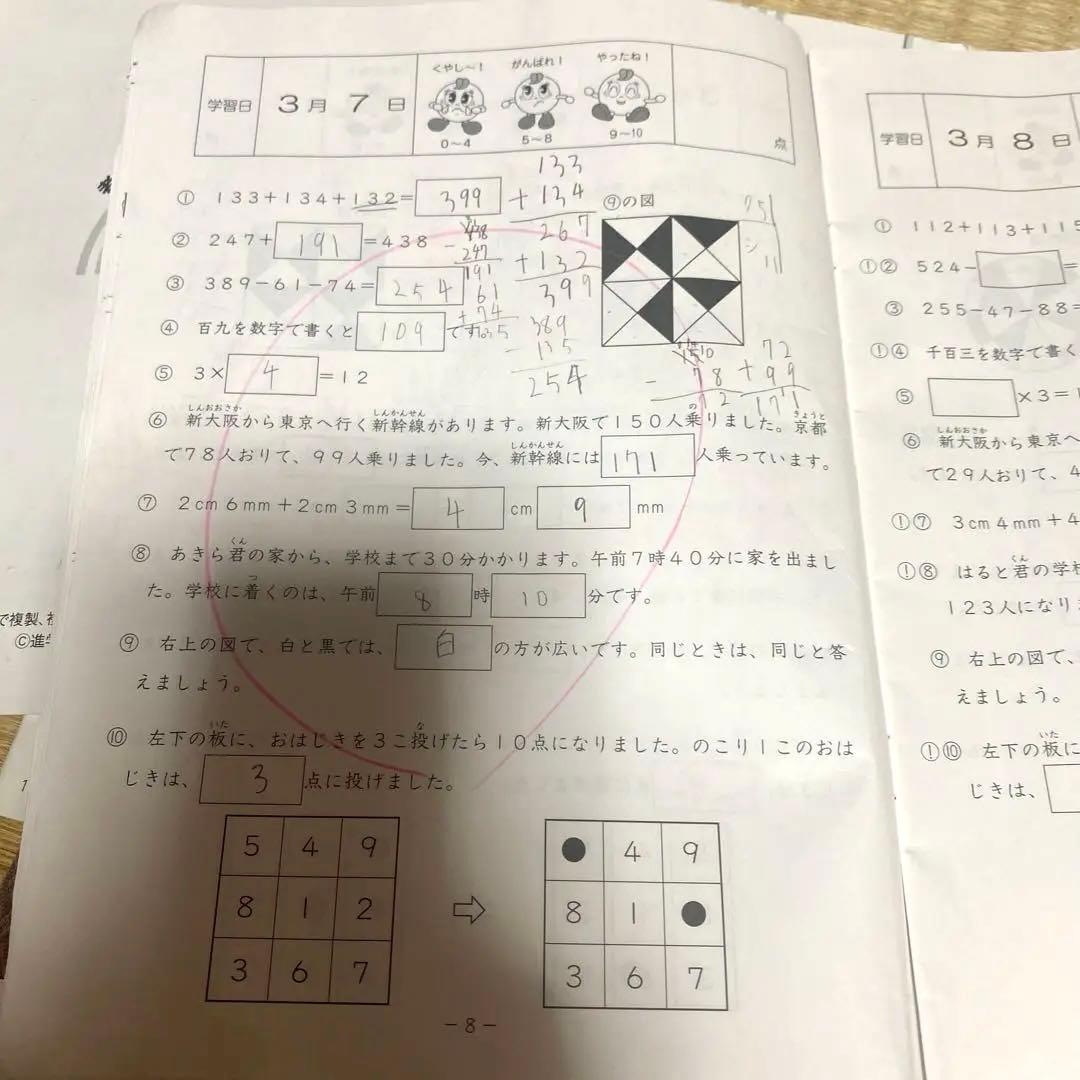 学習日 3月7日
くやし〜! がんばれ! やったね!
0〜4 5〜8 9〜10
点
① 133+134+132= 399
133
+134
267
+132
399
⑨の図
② 247+ 191 =438
438
-247
191
③ 389-61-74= 254
61
+74
135
389
-135
254
④ 百九を数字で書くと 109 です。
⑤ 3× 4 =12
150
-78
72
72
+99
171
⑥ 新大阪から東京へ行く新幹線があります。新大阪で150人乗りました。京都
しんおおさか しんかんせん の きょうと
で78人おりて、99人乗りました。今、新幹線には 171 人乗っています。
しんかんせん
⑦ 2cm6mm+2cm3mm= 4 cm 9 mm
⑧ あきら君の家から、学校まで30分かかります。午前7時40分に家を出まし
くん
た。学校に着くのは、午前 8 時 10 分です。
つ
⑨ 右上の図で、白と黒では、 白 の方が広いです。同じときは、同じと答
えましょう。
⑩ 左下の板に、おはじきを3こ投げたら10点になりました。のこり1このおは
いた な
じきは、 3 点に投げました。
5 4 9
8 1 2
3 6 7
⇨
● 4 9
8 1 ●
3 6 7
-8-
学習日 3月8日
① 112+113+115
①② 524- =
③ 255-47-88=
①④ 千百三を数字で書く
⑤ ×3=1
⑥ 新大阪から東京へ
しんおおさか
で29人おりて、4
①⑦ 3cm4mm+4
①⑧ はると君の学校
くん
123人になり
⑨ 右上の図で、
えましょう。
①⑩ 左下の板に
いた
じきは、
で複製、
©進